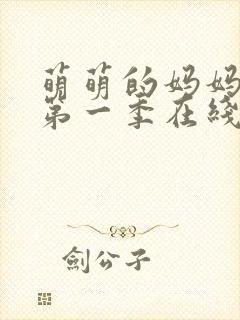 萌萌的妈妈
第一季在綫
劍公子